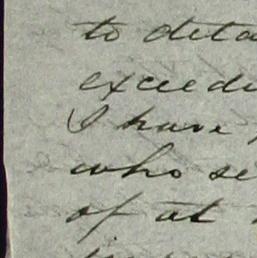 to deta
exceedi
I have
who se
of at